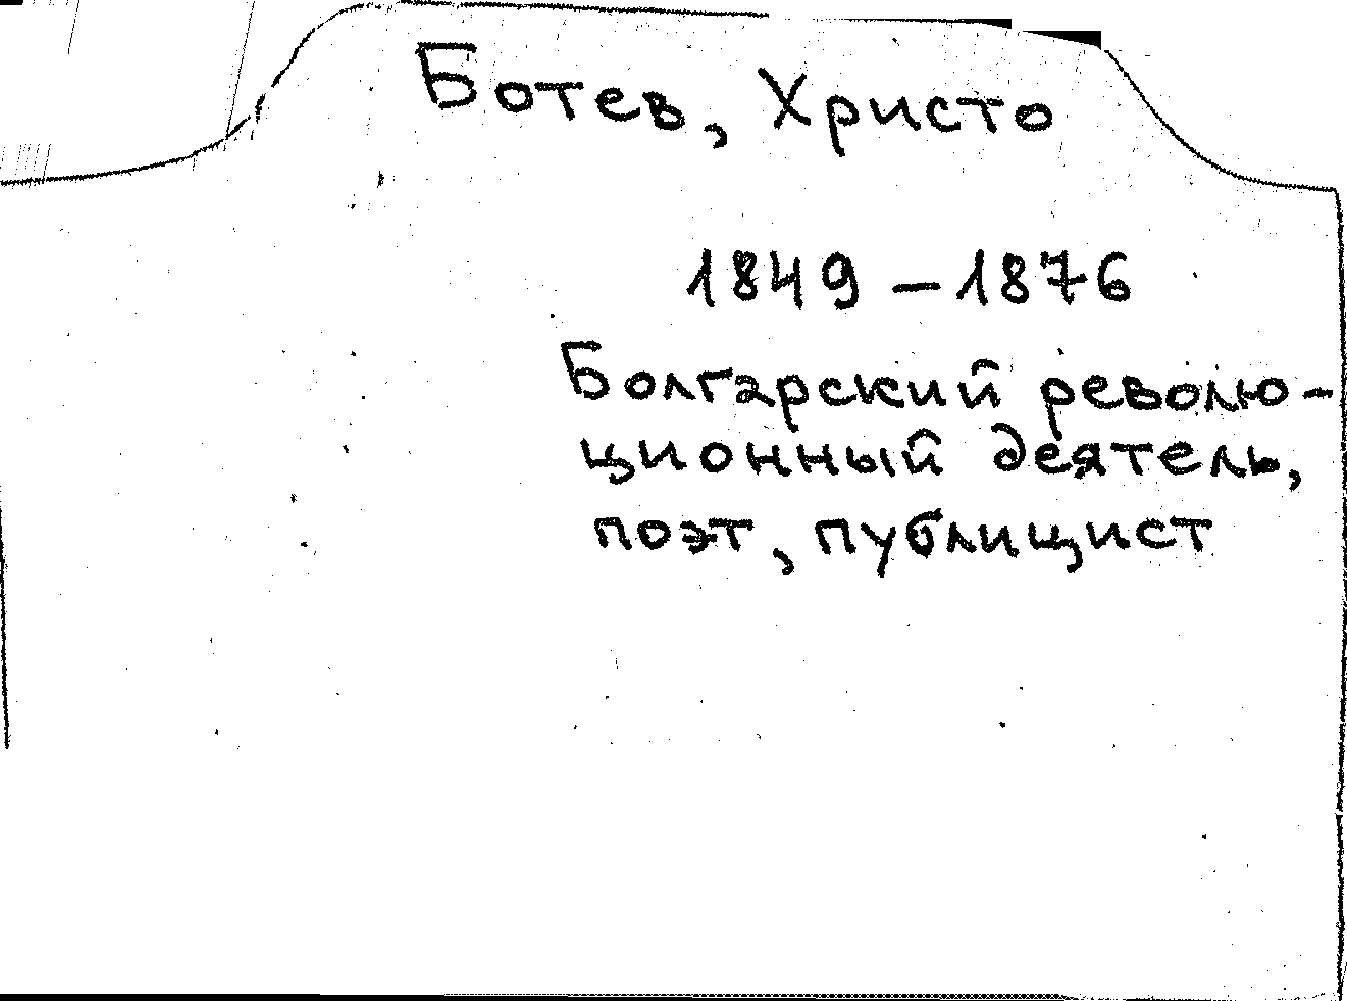 Ботев, Христо
1849 – 1876
Болгарский револю-
ционный деятель,
поэт, публицист